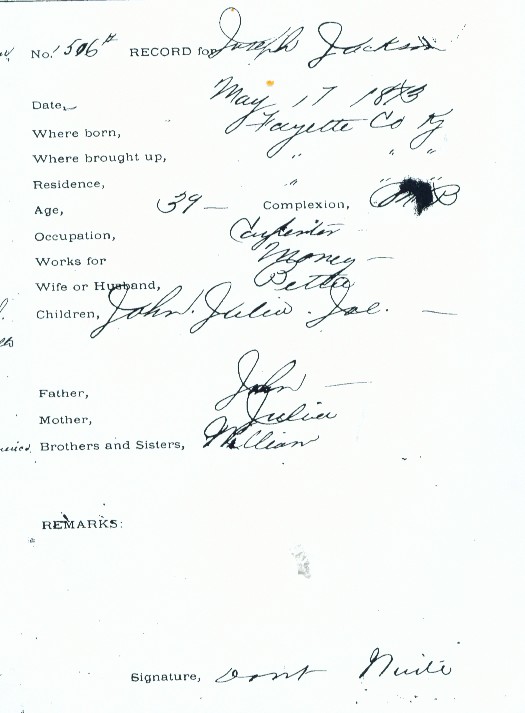 No. 506 RECORD for Joseph Jackson
Date, May 17 1873
Where born, Fayette Co Ky
Where brought up, " " "
Residence, "
Age, 39 — Complexion, B
Occupation, Carpenter
Works for Money —
Wife or Husband, Betta
Children, John. Julia. Joe. —
Father, John —
Mother, Julia
Brothers and Sisters, William
REMARKS:
Signature, Dont Write